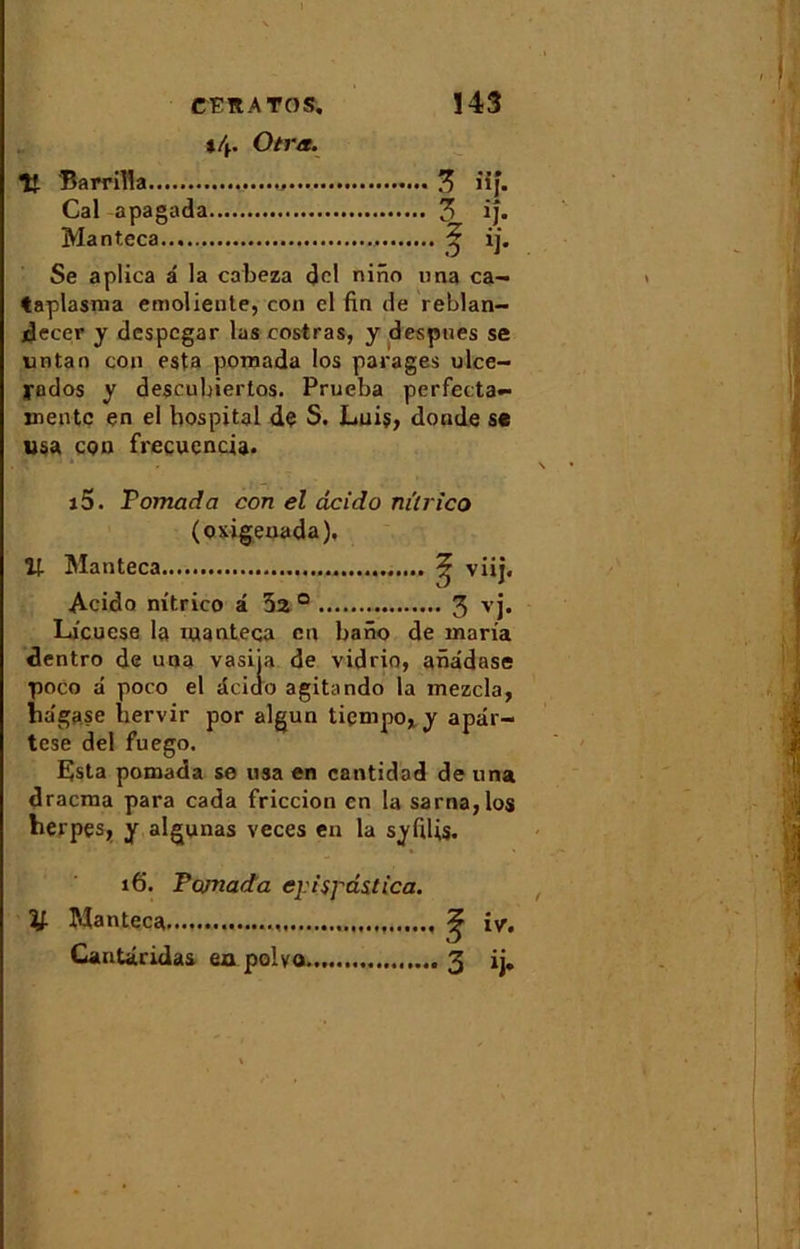 CERATOS. 143
14. Otra.
℞ Barrilla........................................ ʒ iij.
Cal apagada................................. ʒ ij.
Manteca........................................ ℥ ij.
Se aplica á la cabeza del niño una ca-
taplasma emoliente, con el fin de reblan-
decer y despegar las costras, y despues se
untan con esta pomada los parages ulce-
rados y descubiertos. Prueba perfecta-
mente en el hospital de S. Luis, donde se
usa con frecuencia.
15. Pomada con el ácido nítrico
(oxigenada).
℞ Manteca........................................ ℥ viij.
Acido nítrico á 32° .................. ʒ vj.
Lícuese la manteca en baño de maría
dentro de una vasija de vidrio, añádase
poco á poco el ácido agitando la mezcla,
hágase hervir por algun tiempo, y apár-
tese del fuego.
Esta pomada se usa en cantidad de una
dracma para cada friccion en la sarna, los
herpes, y algunas veces en la syfilis.
16. Pomada epispástica.
℞ Manteca........................................ ℥ iv.
Cantáridas en polvo.................... ʒ ij.